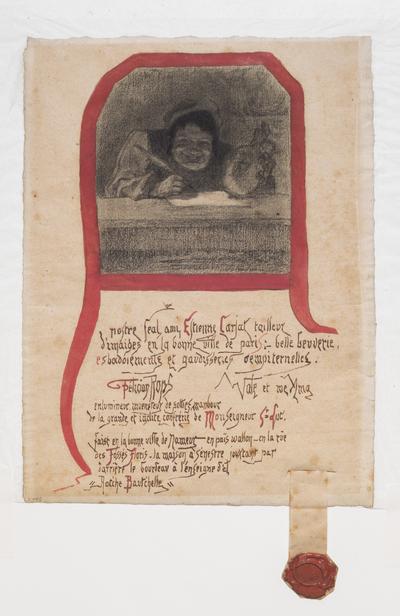 A nostre feal ami Estienne Carjat tailleur
d'imaiges en la bonne ville de paris; belle beuverie,
esbaudoiements et gaudisseries sempiternelles.
Vale et me Ama
enlumineur inventeur de
de la grande et inclite confrerie de Monseigneur St Luc.
Faist en la bonne ville de Nameur en païs wallon en la rüe
des Fossés Floris la maison à senestre jouxtant par
darrière le bourteau à l'enseigne d'el
"Rotche Bautchelle"